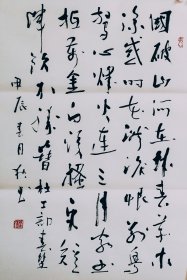 國破山河在城春草木
深感时花濺淚恨別鳥
驚心烽火連三月家書
抵萬金白頭搔更短
渾欲不勝簪杜工部春望
甲辰春月